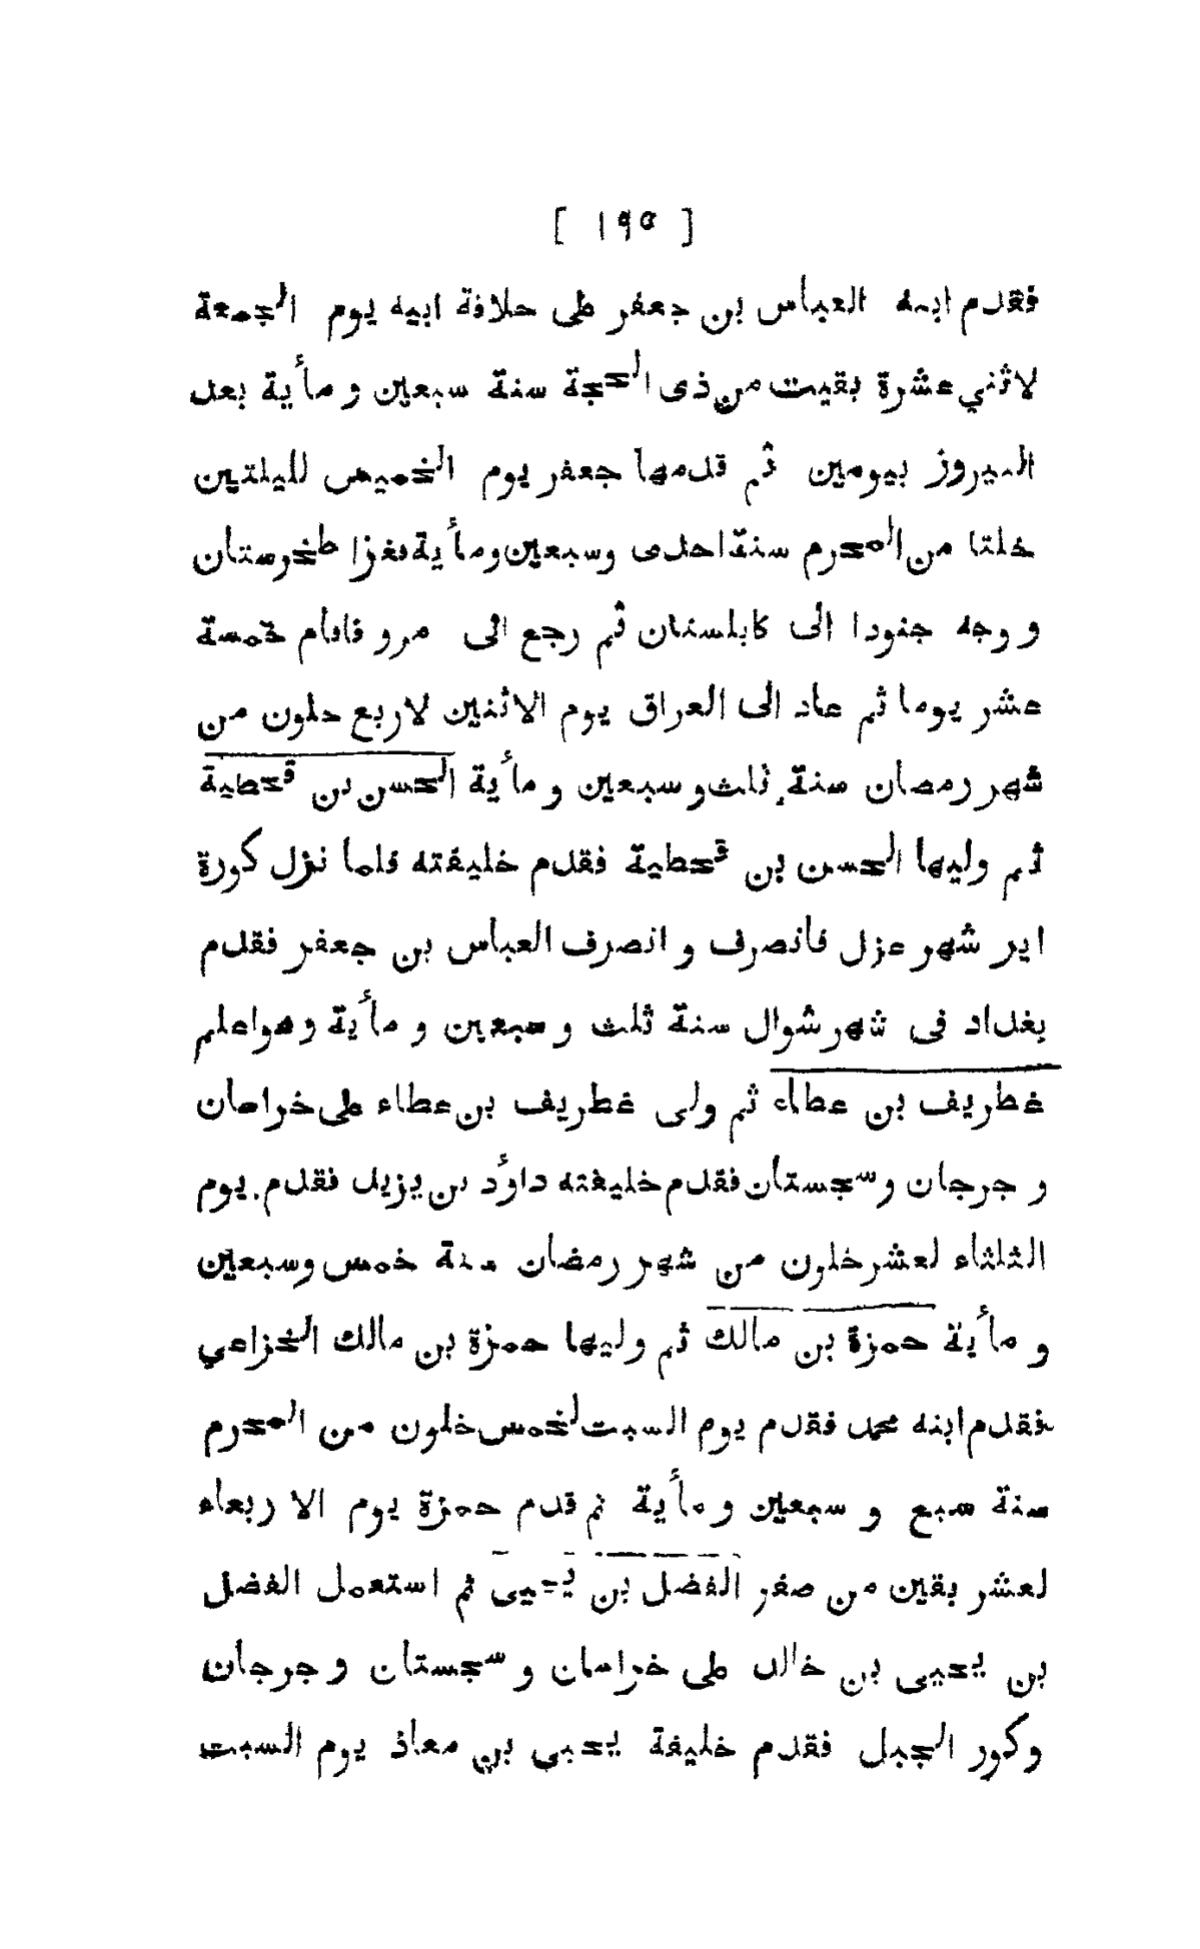 [ ١٩٥ ]
فقدم ابنه العباس بن جعفر على خلافة ابيه يوم الجمعة
لاثني عشرة بقيت من ذى الحجة سنة سبعين و مأية بعد
النيروز بيومين ثم قدمها جعفر يوم الخميس لليلتين
خلتا من المحرم سنة احدى وسبعين ومأية فغزا طخرستان
و وجه جنودا الى كابلستان ثم رجع الى مرو فاقام خمسة
عشر يوما ثم عاد الى العراق يوم الاثنين لاربع خلون من
شهر رمضان سنة ثلث و سبعين و مأية الحسن بن قحطبة
ثم وليها الحسن بن قحطبة فقدم خليفته فلما نزل كورة
اير شهر عزل فانصرف و انصرف العباس بن جعفر فقدم
بغداد فى شهر شوال سنة ثلث و سبعين و مأية وهواعلم
غطريف بن عطاء ثم ولى غطريف بن عطاء على خراسان
و جرجان وسجستان فقدم خليفته داؤد بن يزيد فقدم يوم
الثلثاء لعشر خلون من شهر رمضان سنة خمس وسبعين
و مأية حمزة بن مالك ثم وليها حمزة بن مالك الخزاعي
فقدم ابنه محمد فقدم يوم السبت لخمس خلون من المحرم
سنة سبع و سبعين و مأية ثم قدم حمزة يوم الا ربعاء
لعشر بقين من صفر الفضل بن يحيى ثم استعمل الفضل
بن يحيى بن خالد على خراسان و سجستان و جرجان
وكور الجبل فقدم خليفة يحيى بن معاذ يوم السبت